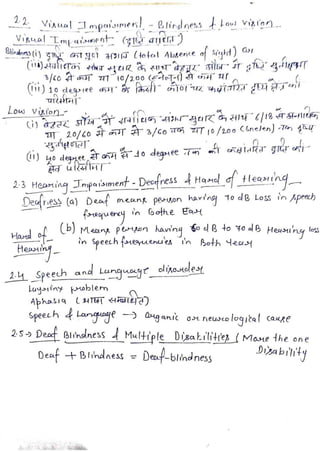 2.2 Visual Impairment - Blindness & Low vision
Visual Impairment (दृष्टि बाधित)
Blindness (i) दृष्टि का पूर्ण अभाव (total Absence of Sight) या
(ii) सर्वाधिक संभव सुधार के साथ बेहतर आँख में दृष्टि
3/60 से कम या 10/200 से कम या
(iii) 10 degree कम के किसी कोण पर कक्षांतरित दृष्टि क्षेत्र की
परिसीमा।
Low Vision -
(i) बेहतर आँख में सर्वाधिक संभव सुधार के साथ 6/18 से अनाधिक
या 20/60 से कम से 3/60 तक या 10/200 (Snelen) तक दृष्य
(ii) 40 degree से कम से 10 degree तक की कक्षांतरित दृष्टि की
क्षेत्र परिसीमा।
2.3 Hearing Impairment - Deafness & Hard of Hearing
Deafness (a) Deaf means person having 70 dB Loss in speech
frequency in Both Ear
Hard of Hearing (b) Means person having 60 dB to 70 dB Hearing loss
in speech frequencies in Both Year
2.4 Speech and Language disorder
Layrinx problem
Aphasia (भाषा सम्बाधित)
Speech & Language → Organic or neurological cause
2.5 → Deaf Blindness & Multiple Disabilities (More the one
Disability
Deaf + Blindness = Deaf-blindness